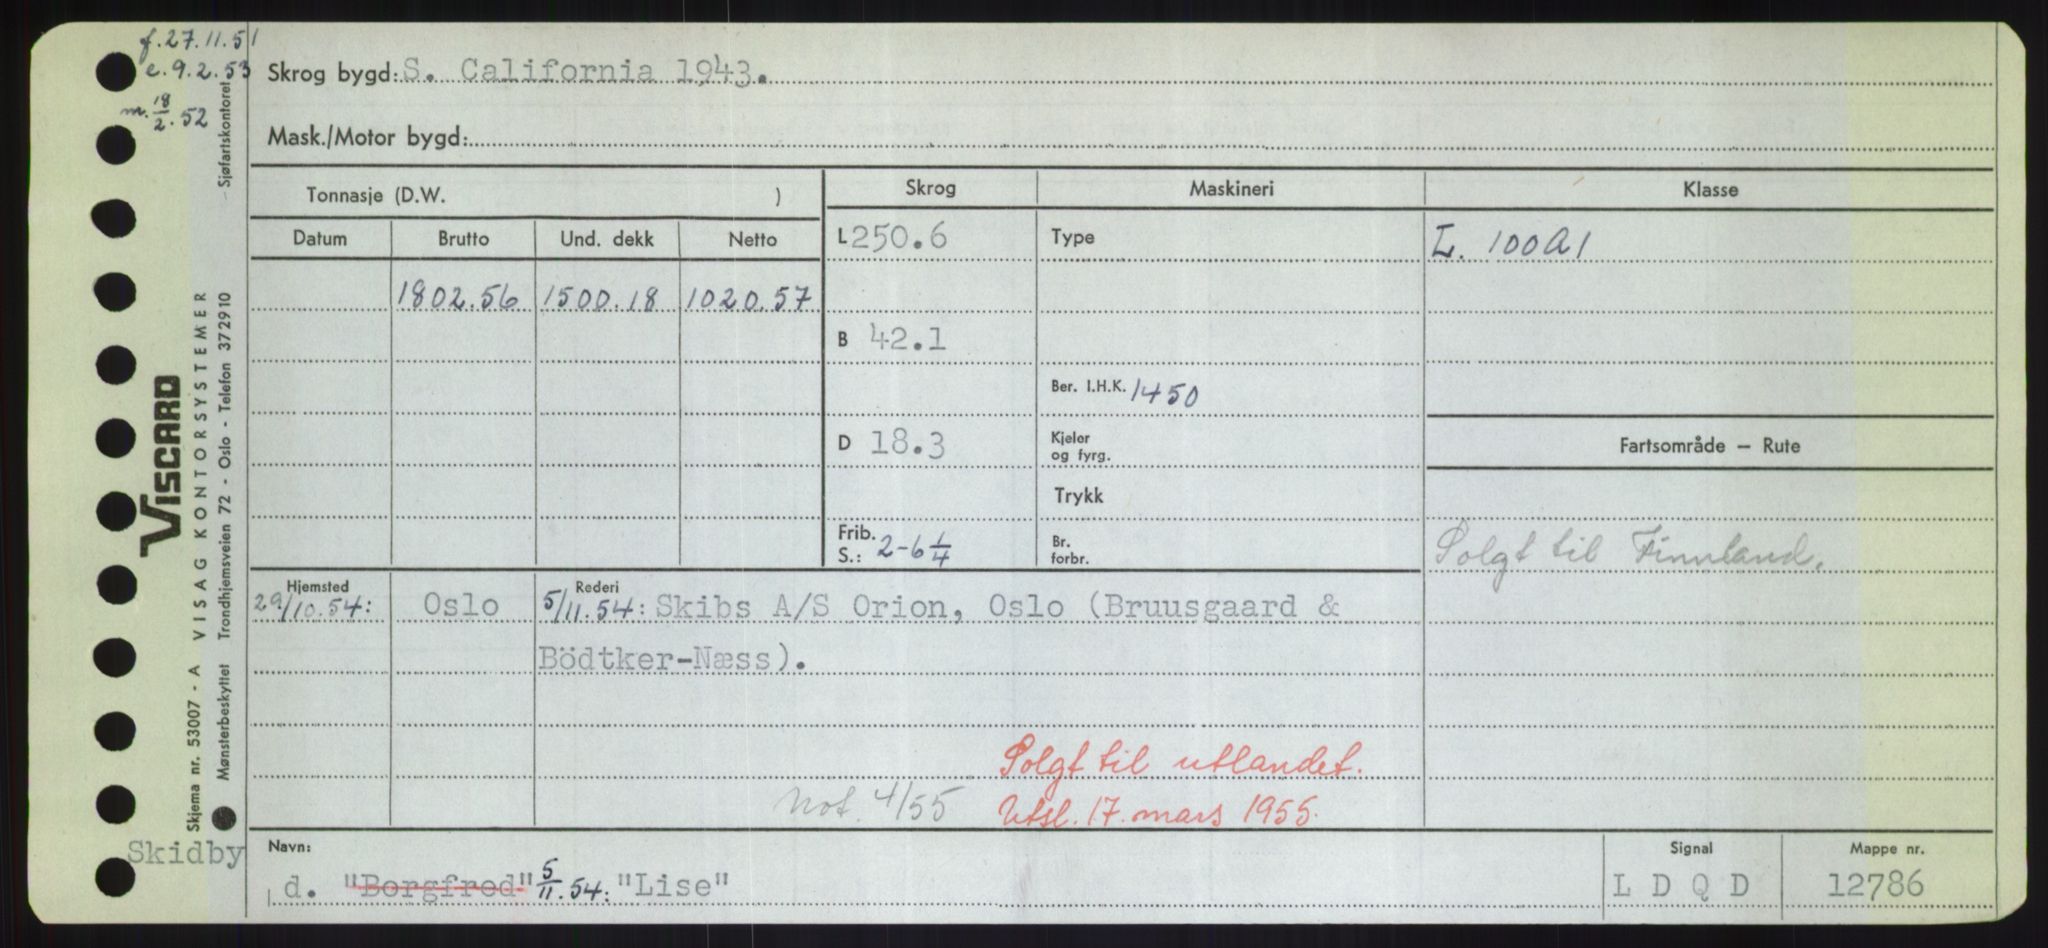 f.27.11.51
e.9.2.53
m. 18/2.52
Skrog bygd: S. California 1943.
Mask./Motor bygd:
Tonnasje (D.W. )
Skrog
Maskineri
Klasse
Datum
Brutto
Und. dekk
Netto
L 250.6
Type
L. 100A1
1802.56
1500.18
1020.57
B 42.1
Ber. I.H.K. 1450
D 18.3
Kjeler
og fyrg.
Fartsområde — Rute
Trykk
Frib.
S.: 2-6 1/4
Br.
forbr.
Solgt til Finnland.
Hjemsted
29/10.54:
Oslo
Rederi
5/11.54: Skibs A/S Orion, Oslo (Bruusgaard &
Bödtker-Næss).
Solgt til utlandet.
Not. 4/55
Utsl. 17. mars 1955.
Navn:
Signal
Mappe nr.
d. "Borgfred" 5/11.54: "Lise"
L D Q D
12786
Skidby
VISCARD
Skjema nr. 53007 - A VISAG KONTORSYSTEMER
Mønsterbeskyttet Trondhjemsveien 72 - Oslo - Telefon 372910 - Sjøfartskontoret